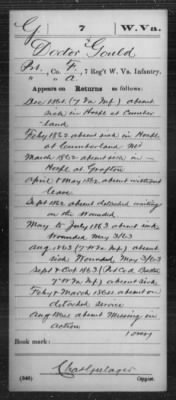 G | 7 | W. Va.
Doctor Gould
Pvt., Co. F, 7 Reg't W. Va. Infantry.
" " a.
Appears on Returns as follows:
Dec 1861 (7 Va Inf) absent
sick in Hospl at Cumber
land
Feby 1862 absent sick in Hospl
at Cumberland Md
March 1862 absent sick in
Hospl at Grafton
April & May 1862 absent without
leave
Sept 1862 absent detached waiting
on the wounded
May to July 1863 absent sick
Wounded May 3/63
Aug 1863 (7 W Va Inf) absent
sick Wounded May 3/63
Sept & Oct 1863
7 W Va Inf) absent sick
Feby & March 1864 absent on
detached service
Aug 1864 absent Missing in
action
Book mark:
(546) Copyist.